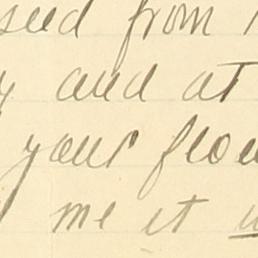 seed from
and at
your flow
me it